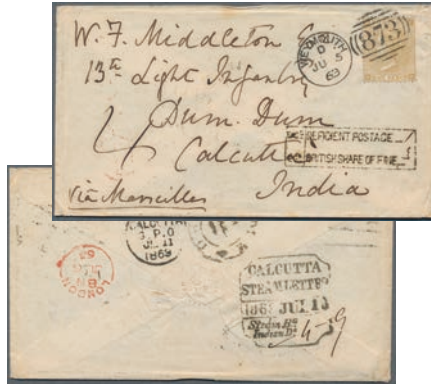 W. F. Middleton
13th Light Infantry
Dum. Dum
Calcutta
India
via Marseilles
WEYMOUTH
D
JU 5
63
873
DEFICIENT POSTAGE
BRITISH SHARE OF FINE
CALCUTTA
G.P.O
JL 11
1863
LONDON
CALCUTTA
STEAM LETTER
1863 JUL 13
Steam
Indian